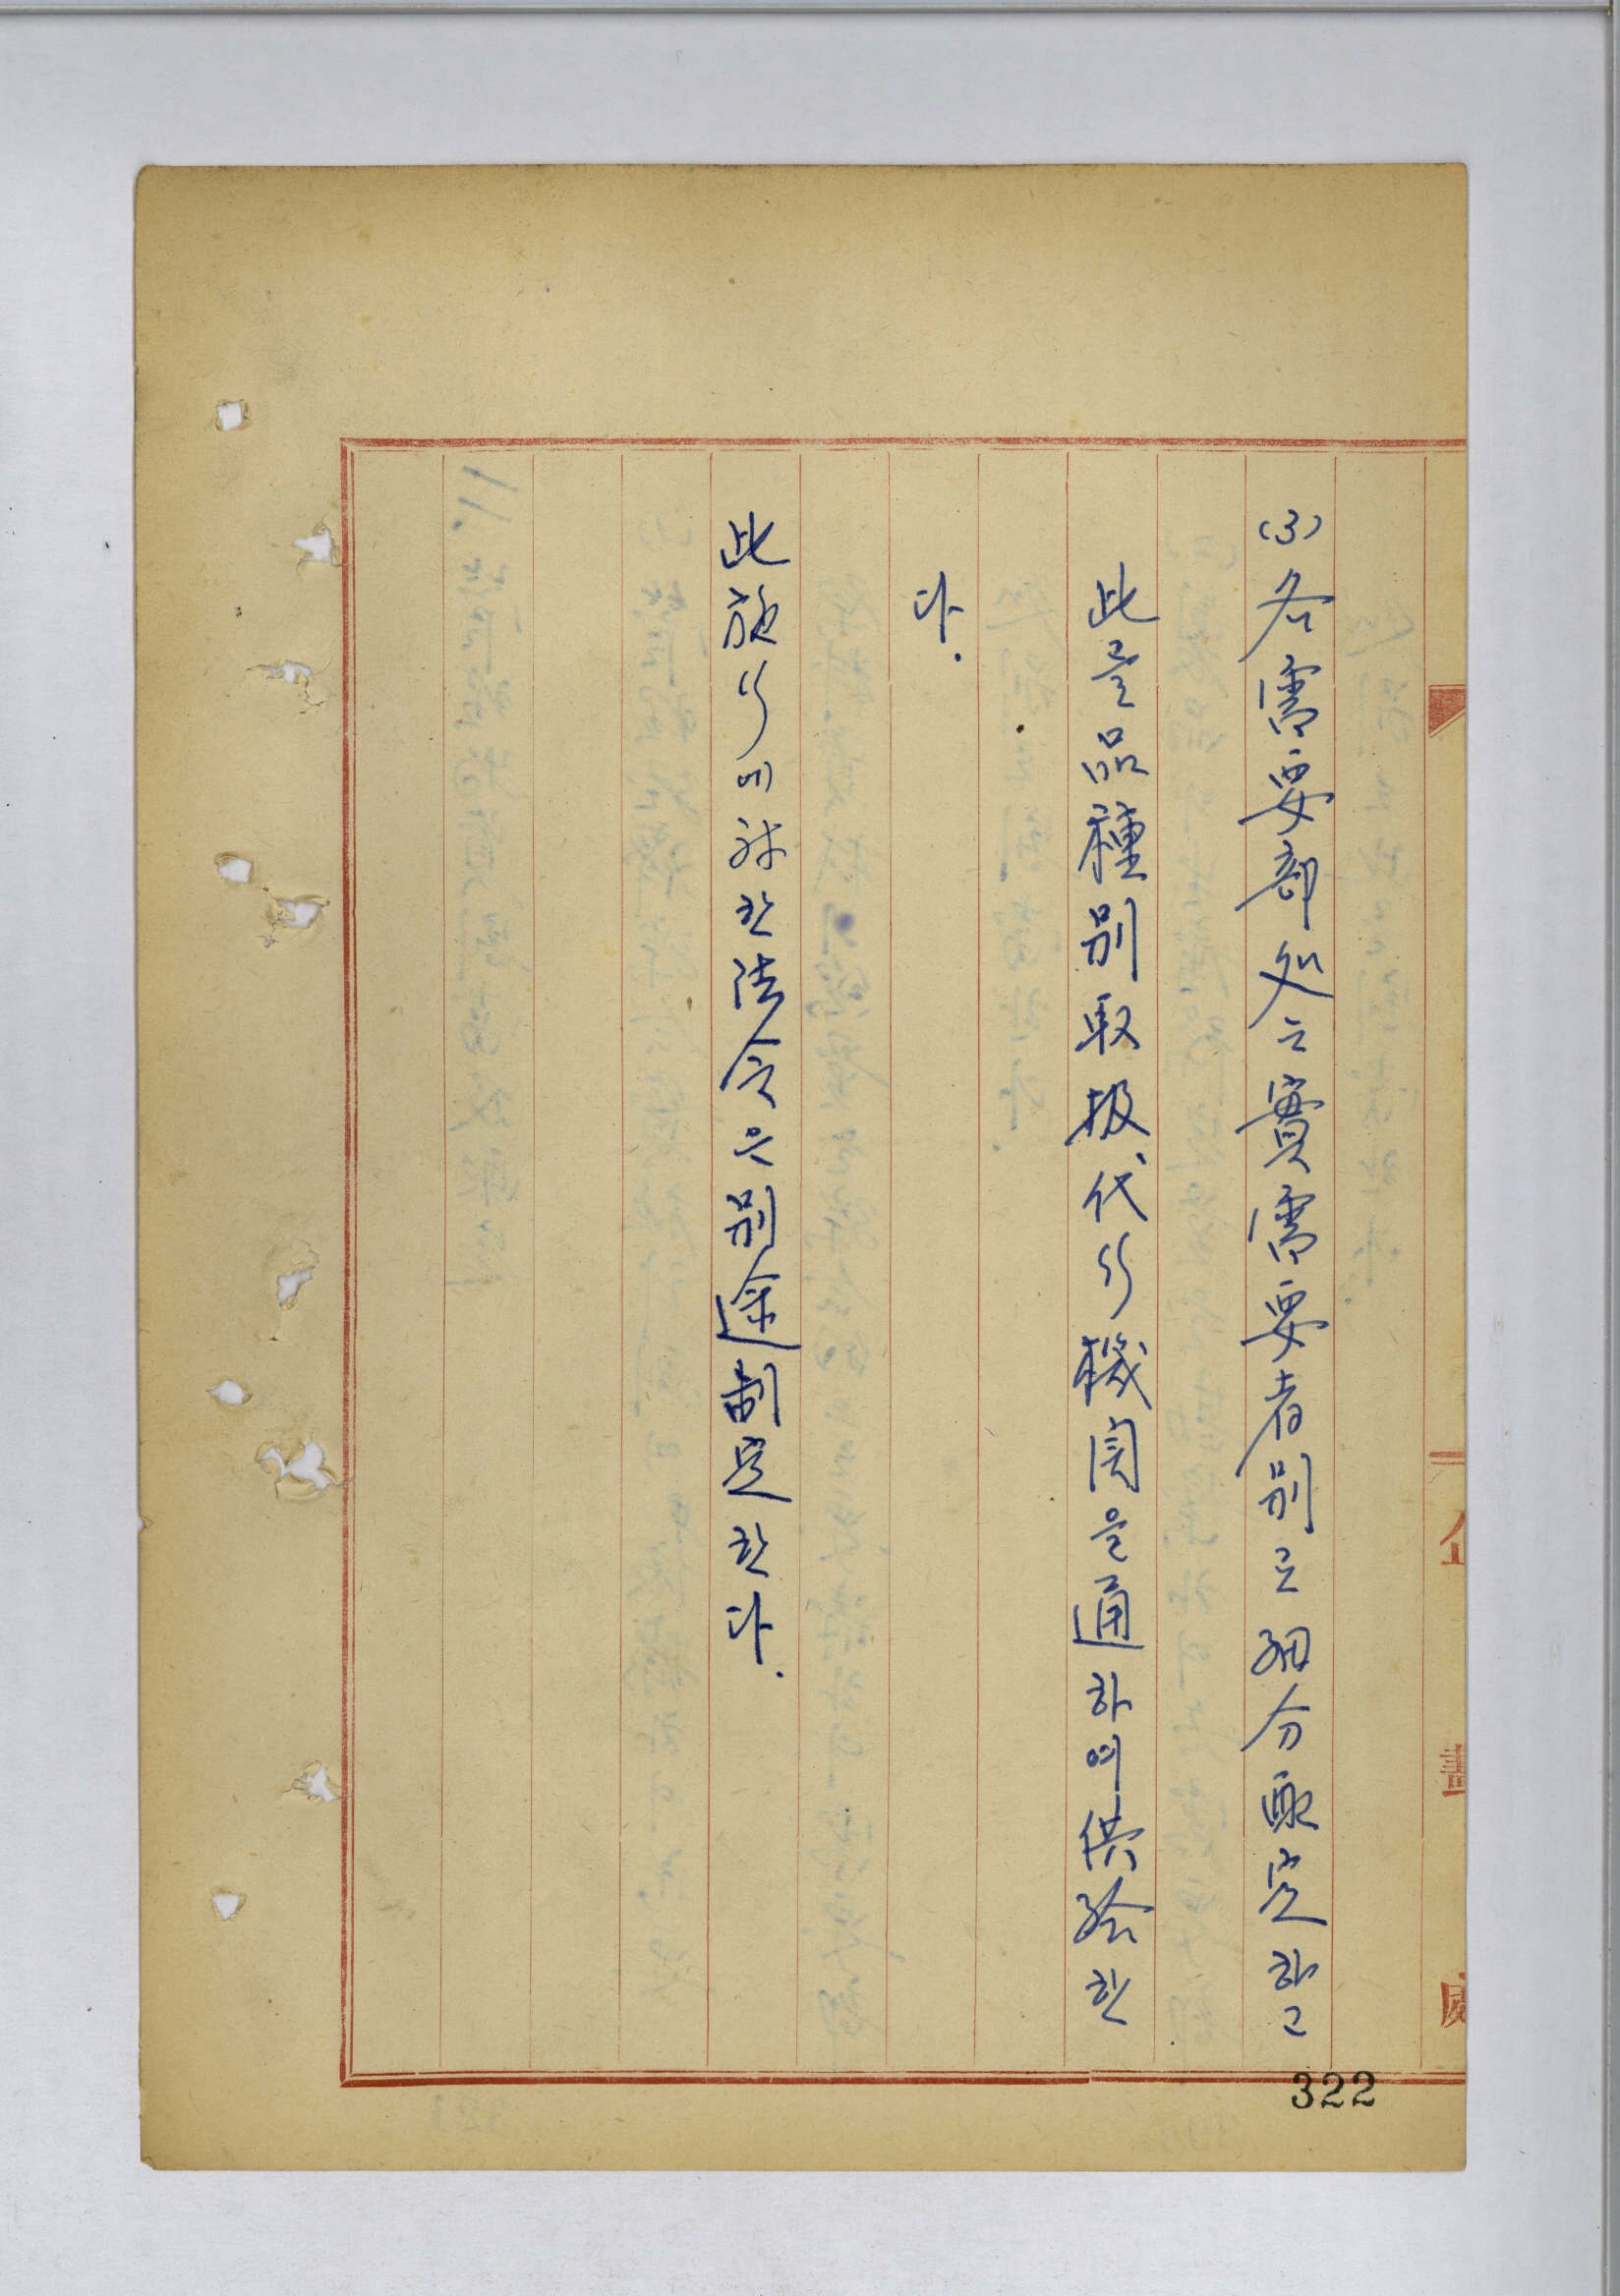 (3) 各需要部處는 實需要者別로 細分 配定하고
此를 品種別取扱代行機関을 通하여 供給한
다.
此施行에 対한 法令은 別途制定한다.
企畫處
322